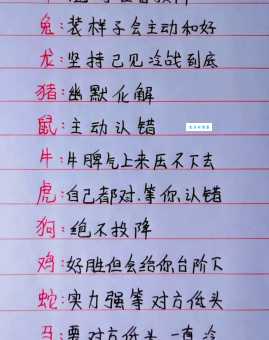 兔:装样子会主动和好
龙:坚持己见冷战到底
猪:幽默化解
鼠:主动认错
牛:牛脾气上来压不下去
虎:自己都对.等你认错
狗:绝不投降
鸡:好胜但会给你台阶下
蛇:实力强等对方低头
马:要对方低头一直冷